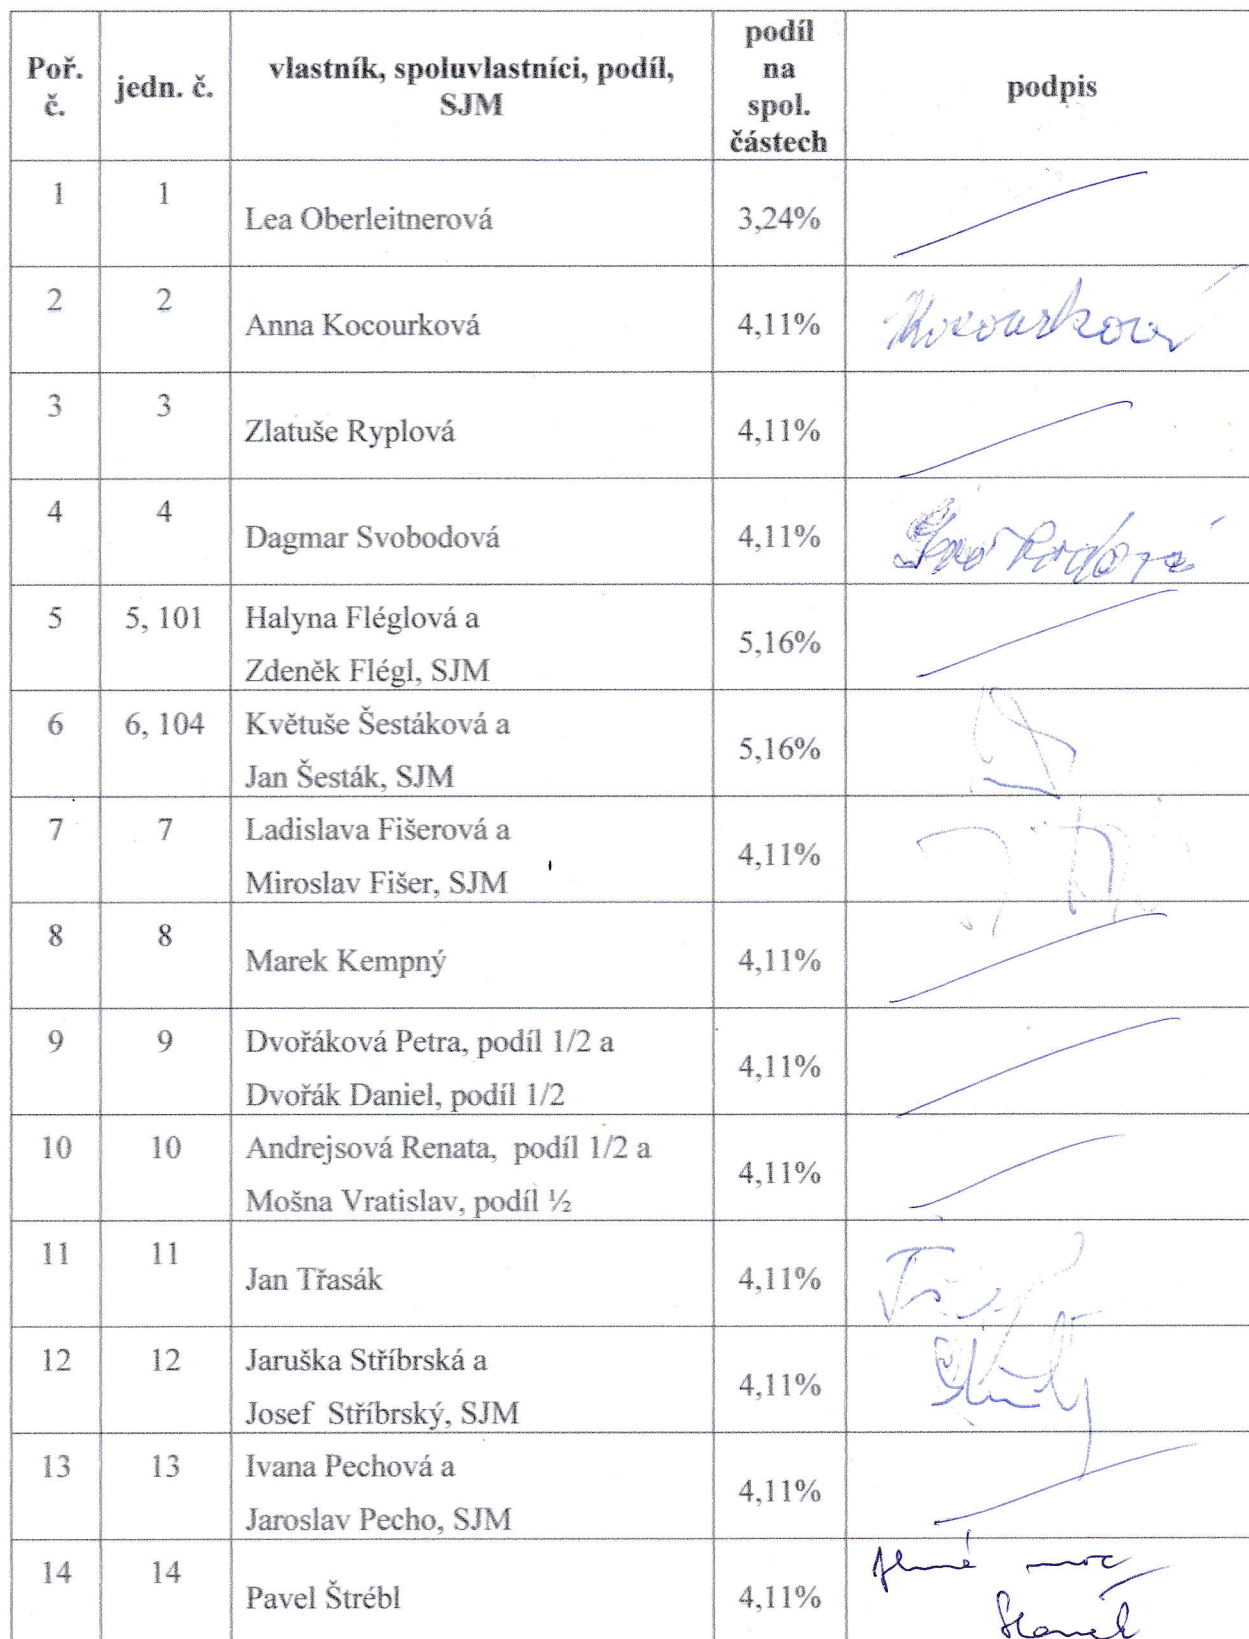 Poř. č. jedn. č. vlastník, spoluvlastníci, podíl, SJM podíl na spol. částech podpis
1 1 Lea Oberleitnerová 3,24%
2 2 Anna Kocourková 4,11% Kocourková
3 3 Zlatuše Ryplová 4,11%
4 4 Dagmar Svobodová 4,11% Svobodová
5 5, 101 Halyna Fléglová a
Zdeněk Flégl, SJM 5,16%
6 6, 104 Květuše Šestáková a
Jan Šesták, SJM 5,16%
7 7 Ladislava Fišerová a
Miroslav Fišer, SJM 4,11%
8 8 Marek Kempný 4,11%
9 9 Dvořáková Petra, podíl 1/2 a
Dvořák Daniel, podíl 1/2 4,11%
10 10 Andrejsová Renata, podíl 1/2 a
Mošna Vratislav, podíl ½ 4,11%
11 11 Jan Třasák 4,11%
12 12 Jaruška Stříbrská a
Josef Stříbrský, SJM 4,11%
13 13 Ivana Pechová a
Jaroslav Pecho, SJM 4,11%
14 14 Pavel Štrébl 4,11% plná moc